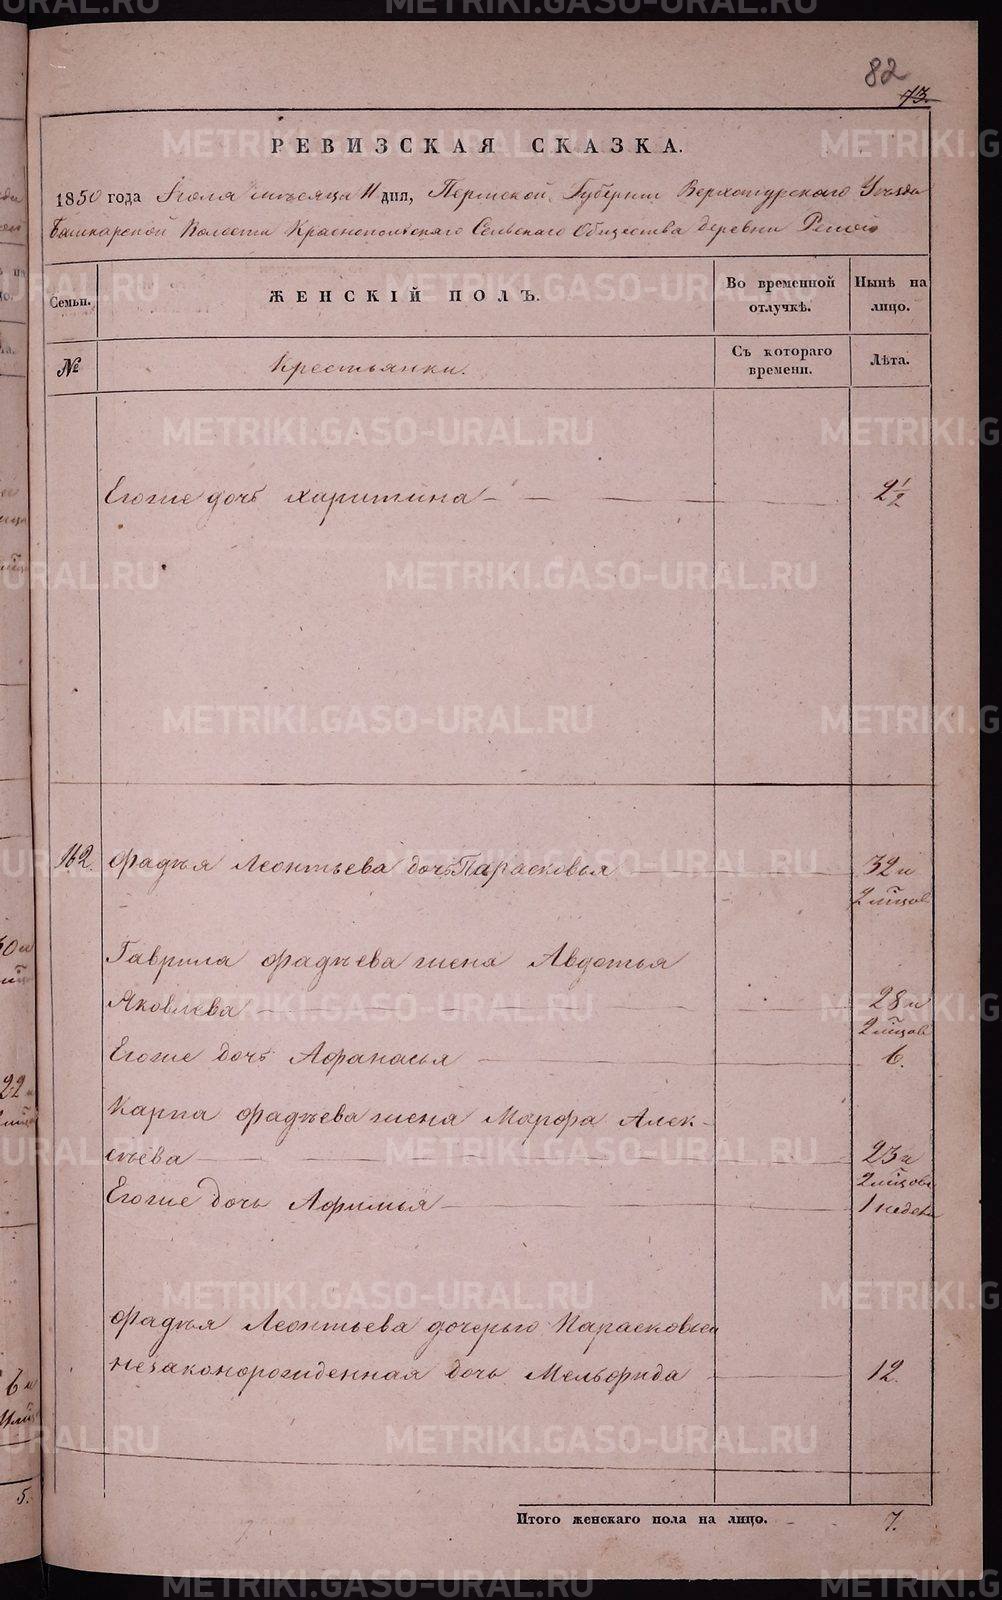 82
73.
РЕВИЗСКАЯ СКАЗКА.
1850 года Іюля мѣсяца 11 дня, Пермской Губерніи Верхотурскаго Уѣзда
Башкарской Волости Краснопольскаго Сельскаго Общества деревни
Семьи.
ЖЕНСКІЙ ПОЛЪ.
Во временной отлучкѣ.
Нынѣ на лицо.
№
Крестьянки.
Съ котораго времени.
Лѣта.
Егоже дочь Харитина 2 1/2
162. Фадѣя Леонтьева дочь Парасковья 32 и
2 мѣцов
Гаврила Фадѣева жена Авдотья
Яковлева 28 и
2 мѣцов
Егоже дочь Афанасья 6.
Карпа Фадѣева жена Марфа Алек-
сѣева 23 и
2 мѣцов
Егоже дочь Афимья 1 недели
Фадѣя Леонтьева дочерью Парасковьи
незаконорожденная дочь 12.
Итого женскаго пола на лицо. 7.
METRIKI.GASO-URAL.RU